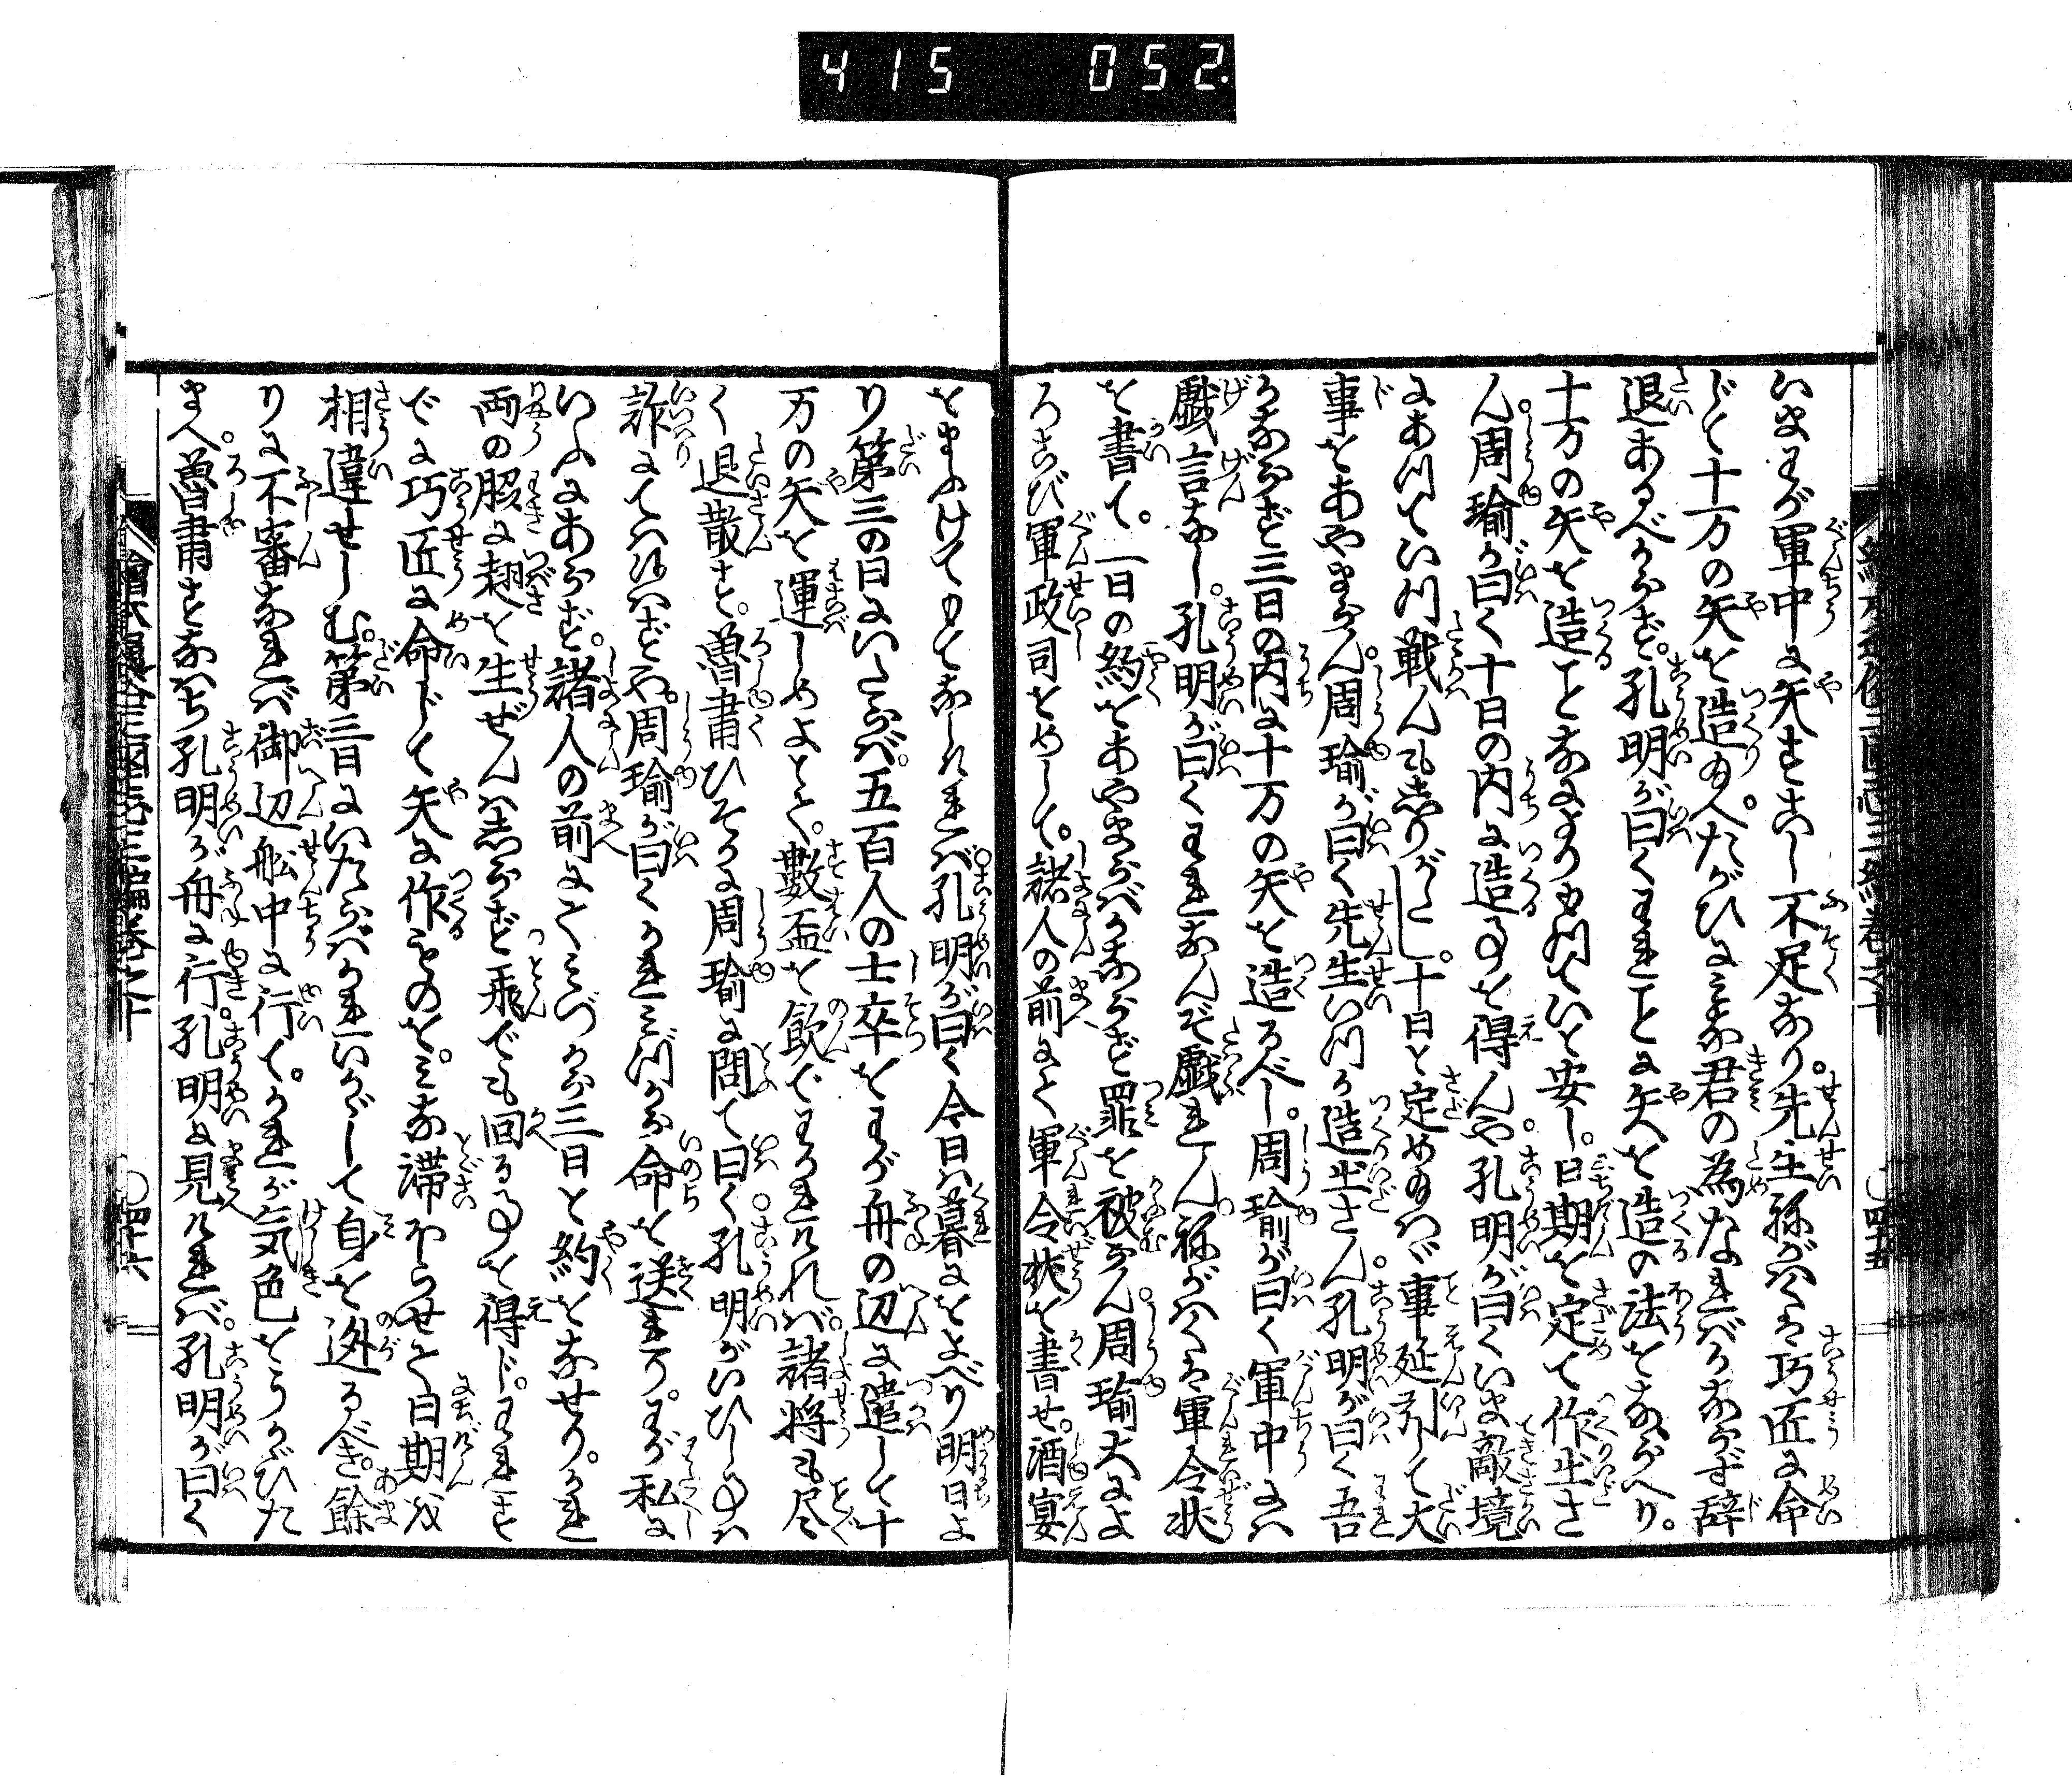 415 052
いまわが軍中に矢すこし不足なり。先生ねがはくは巧匠に命
じて十万の矢を造り給へ。たがひにみな君の為なればかならず辞
退あるべからず。孔明が曰くわれことに矢を造るの法をまなべり。
十万の矢を造ことなによりもつていと安し。日期を定て作出さ
ん。周瑜が曰く十日の内に造る事を得んや。孔明が曰くいま敵境
にあつていつ戦んも志りがたし。十日と定め給はゞ事延引して大
事をあやまらん。周瑜が曰く先生いつか造出さん。孔明が曰く吾
かならず三日の内に十万の矢を造るべし。周瑜が曰く軍中には
戯言なし。孔明が曰くわれなんぞ戯れん。ねがはくは軍令状
を書て。一日の約をあやまらばかならず罪を被らん。周瑜大によ
ろこび軍政司をめして。諸人の前にて軍令状を書せ。酒宴
をまふけてもてなしければ。孔明が曰く今日は暮におよべり明日よ
り第三の日にいたらば。五百人の士卒をわが舟の辺に遣して十
万の矢を運しめよとて。数盃を飲でわかれければ。諸将も尽
く退散す。魯粛ひそかに周瑜に問て曰く。孔明がいひし事は
詐にては候はずや。周瑜が曰くかれみづから命を送れり。わが私に
いふにあらず。諸人の前にてみづから三日と約をなせり。かれ
両の脇に翅を生ぜんは志らず飛でも回る事を得じ。われす
でに巧匠に命じて矢に作るものを。みな滞おらせて日期を
相違せしむ。第三日にいたらばかれいかゞして身を迯るべき。餘
りに不審なれば御辺舩中に行て。かれが気色をうかゞひた
まへ。魯粛すなはち孔明が舟に行。孔明に見ければ。孔明が曰く
四十五
四十六